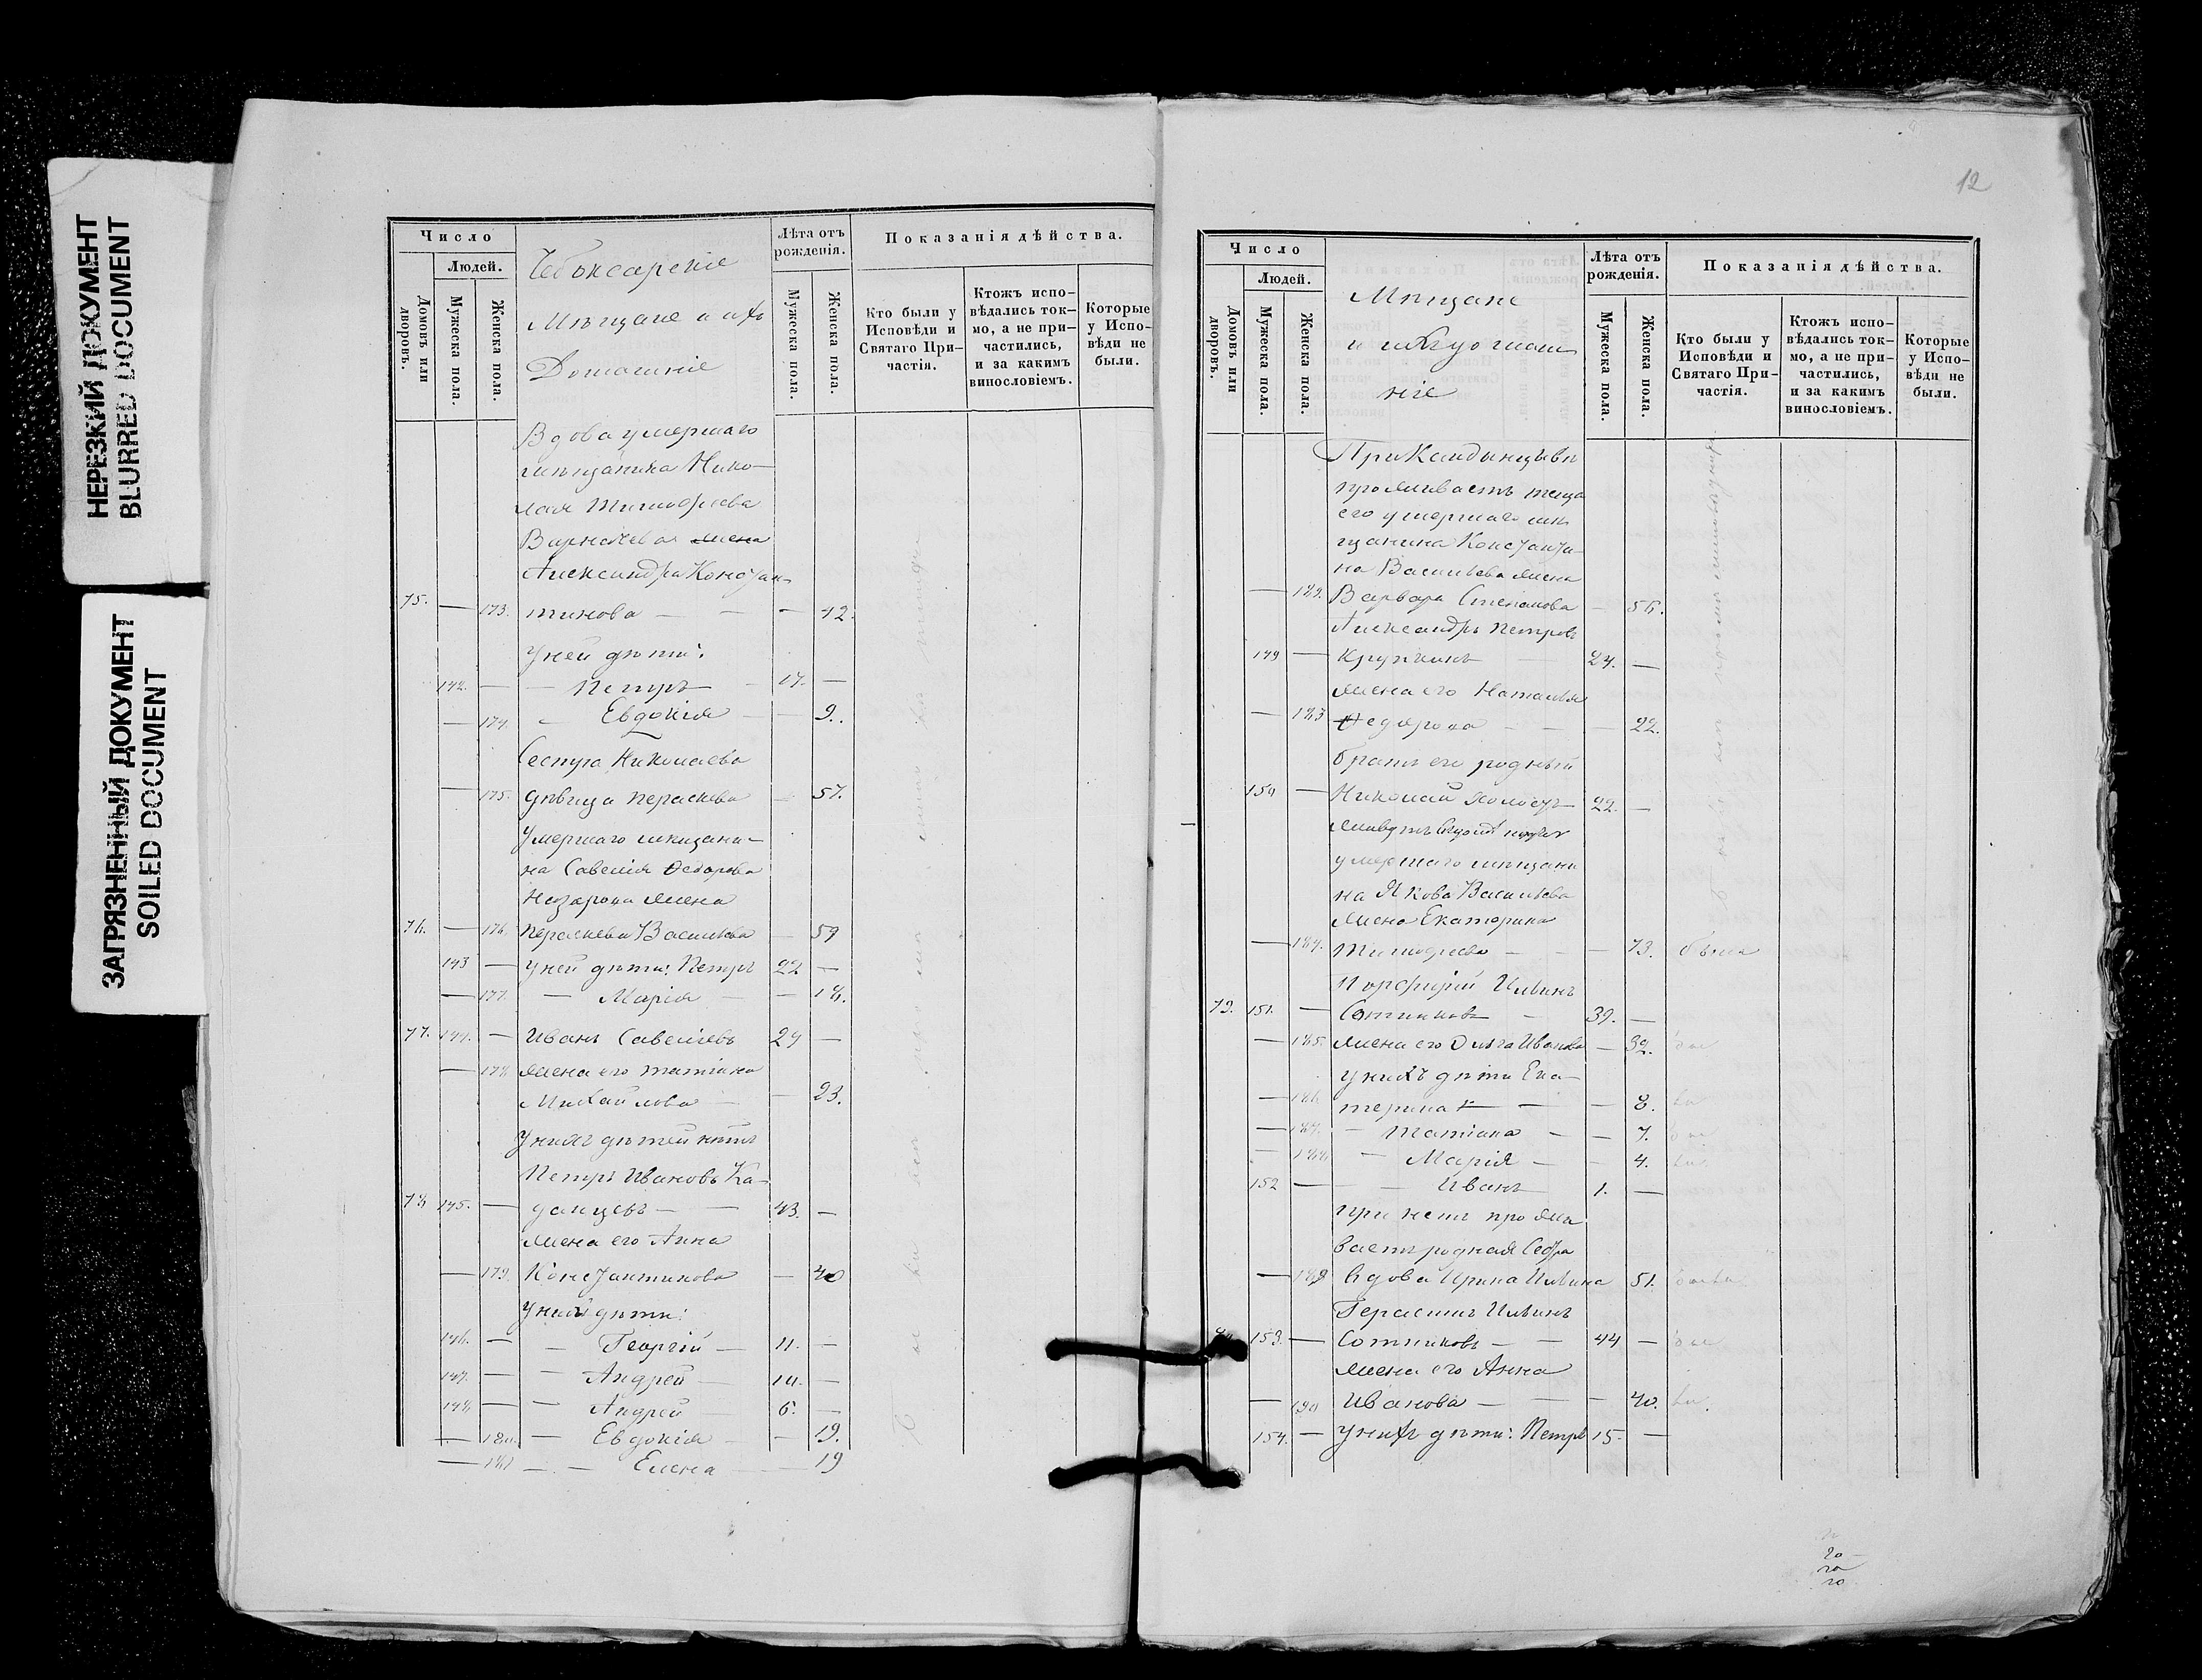 НЕРЕЗКИЙ ДОКУМЕНТ
BLURRED DOCUMENT
ЗАГРЯЗНЕННЫЙ ДОКУМЕНТ
SOILED DOCUMENT
Число
Людей.
Домовъ или дворовъ.
Мужеска пола.
Женска пола.
Чебоксарскіе
Мѣщане и ихъ
Домашніе
Лѣта отъ рожденія.
Мужеска пола.
Женска пола.
Показанія дѣйства.
Кто были у Исповѣди и Святаго Причастія.
Ктожъ исповѣдались токмо, а не причастились, и за какимъ винословіемъ.
Которые у Исповѣди не были.
Вдова умершаго
мѣщанина Нико-
лая Тимофѣева
жена
Александра Констан-
75. — 173. тинова — — — 42.
У ней дѣти:
142. — — Петръ — 17. —
— 174. — Евдокія — — 9.
Сестра Николаева
— 175. дѣвица Параскева — 57.
Умершаго мѣщани-
на Савелія Федорова
Назарова жена
76. — 176. Параскева Васильева — 59
143 — У ней дѣти: Петръ 22 —
— 177. — Марія — — 18.
77. 144. — Иванъ Савельевъ 29 —
— 178 жена его Татіана
Михайлова — — 23.
У нихъ дѣтей нѣтъ
Петръ Ивановъ Ка-
78 145. — данцевъ — — 43. —
жена его Анна
— 179. Константинова — 40
У нихъ дѣти:
146. — — Георгій — 11. —
147. — — Андрей — 10. —
148 — — Андрей 6. —
— 180. — Евдокія — — 19.
— 181 — — Елена — — 19
12
Число
Людей.
Домовъ или дворовъ.
Мужеска пола.
Женска пола.
Мѣщане
и ихъ домаш
ніе
Лѣта отъ рожденія.
Мужеска пола.
Женска пола.
Показанія дѣйства.
Кто были у Исповѣди и Святаго Причастія.
Ктожъ исповѣдались токмо, а не причастились, и за какимъ винословіемъ.
Которые у Исповѣди не были.
При
проживаетъ теща
его умершаго мѣ
щанина Константи-
на Васильева жена
— 182. Варвара Степанова — 56.
Александръ Петровъ
149 — 24. —
жена его Наталья
— 183 Федорова — — — 22.
братъ его родный
150 — Николай холостъ — 22. —
умершаго мѣщани
на Якова Васильева
жена Екатерина
— 184. Тимофеева — — — 73. была
Порфирій Ильинъ
79. 151. — Сотниковъ — 39. —
— 185. жена его Ольга Иванова — 39.
у нихъ дѣти Ека-
— 186 терина — — — 8.
— 187. — Татіана — — 7.
— 188 — Марія — — 4.
152 — — Иванъ 1. —
при немъ прожи
ваетъ родная Сестра
— 189 вдова Ирина Ильина 51.
Герасимъ Ильинъ
80 153. — Сотниковъ — — 44 —
жена его Анна
— 190 Иванова — — — 40.
154. — у нихъ дѣти: Петръ 15 —
20
20
20